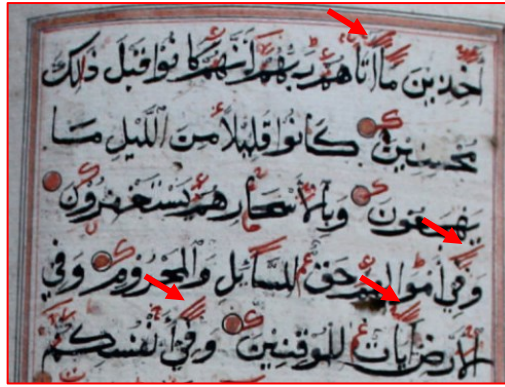 آخِذِينَ مَا آتَاهُمْ رَبُّهُمْ إِنَّهُمْ كَانُوا قَبْلَ ذَالِكَ
مُحْسِنِينَ كَانُوا قَلِيلًا مِنَ اللَّيْلِ مَا
يَهْجَعُونَ وَبِالْأَسْحَارِ هُمْ يَسْتَغْفِرُونَ
وَفِي أَمْوَالِهِمْ حَقٌّ لِلسَّائِلِ وَالْمَحْرُومِ وَفِي
الْأَرْضِ آيَاتٌ لِلْمُوقِنِينَ وَفِي أَنْفُسِكُمْ